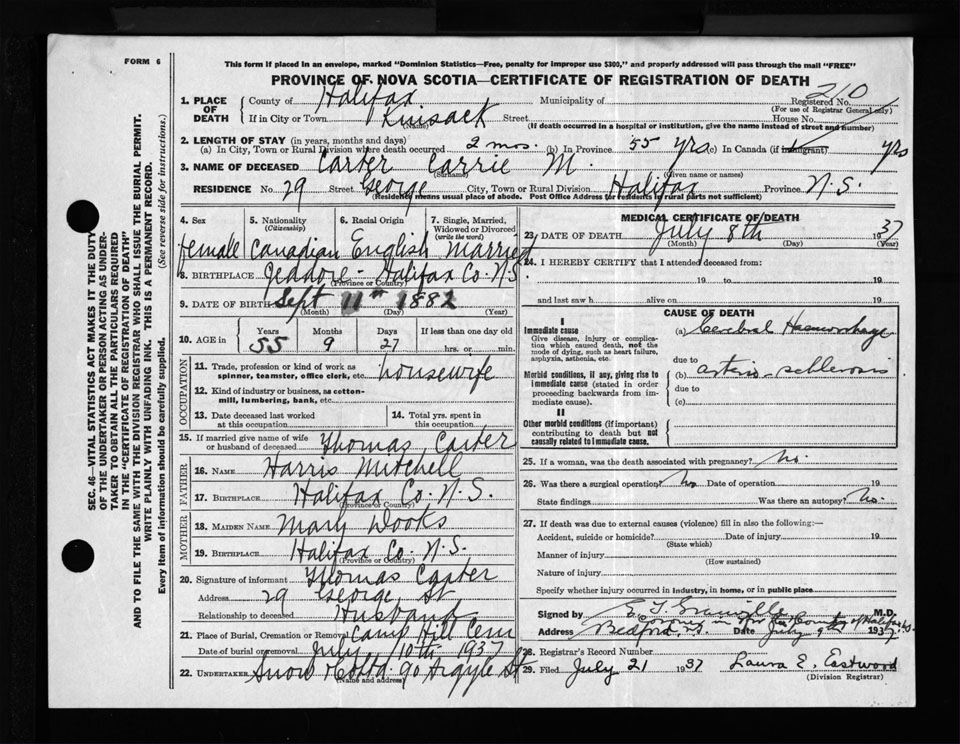 FORM 6
This form if placed in an envelope, marked "Dominion Statistics—Free, penalty for improper use $300," and properly addressed will pass through the mail "FREE"
PROVINCE OF NOVA SCOTIA—CERTIFICATE OF REGISTRATION OF DEATH
210
1. PLACE OF DEATH
County of Halifax Municipality of Registered No.
(For use of Registrar General only)
If in City or Town Kinsack Street House No.
(Name) (If death occurred in a hospital or institution, give the name instead of street and number)
2. LENGTH OF STAY (in years, months and days)
(a) In City, Town or Rural Division where death occurred 2 mos. (b) In Province 55 yrs (c) In Canada (if immigrant) yrs
3. NAME OF DECEASED Carter Carrie M.
(Surname) (Given name or names)
RESIDENCE No. 29 Street George City, Town or Rural Division Halifax Province N.S.
(Residence means usual place of abode. Post Office Address for residents in rural parts not sufficient)
4. Sex 5. Nationality (Citizenship) 6. Racial Origin 7. Single, Married, Widowed or Divorced (write the word)
female Canadian English Married
8. BIRTHPLACE Jeddore - Halifax Co. N.S.
(Province or Country)
9. DATE OF BIRTH Sept 11th 1882
(Month) (Day) (Year)
10. AGE in Years Months Days If less than one day old
55 9 27 hrs. or min.
OCCUPATION
11. Trade, profession or kind of work as spinner, teamster, office clerk, etc. housewife
12. Kind of industry or business, as cotton-mill, lumbering, bank, etc.
13. Date deceased last worked at this occupation
14. Total yrs. spent in this occupation
15. If married give name of wife or husband of deceased Thomas Carter
FATHER
16. NAME Harris Mitchell
17. BIRTHPLACE Halifax Co. N.S.
(Province or Country)
MOTHER
18. MAIDEN NAME Mary Dooks
19. BIRTHPLACE Halifax Co. N.S.
(Province or Country)
20. Signature of informant Thomas Carter
Address 29 George St
Relationship to deceased Husband
21. Place of Burial, Cremation or Removal Camp Hill Cem
Date of burial or removal July 10th 1937
22. UNDERTAKER Snow & Co Ltd 90 Argyle St
(Name and address)
MEDICAL CERTIFICATE OF DEATH
23. DATE OF DEATH July 8th 1937
(Month) (Day) (Year)
24. I HEREBY CERTIFY that I attended deceased from:
19 to 19
and last saw h alive on 19
CAUSE OF DEATH
I
Immediate cause (a) Cerebral Haemorrhage
Give disease, injury or complication which caused death, not the mode of dying, such as heart failure, asphyxia, asthenia, etc.
due to
Morbid conditions, if any, giving rise to immediate cause (stated in order proceeding backwards from immediate cause).
(b) arterio-schlerosis
due to
(c)
II
Other morbid conditions (if important) contributing to death but not causally related to immediate cause.
25. If a woman, was the death associated with pregnancy? No.
26. Was there a surgical operation? No Date of operation 19
State findings Was there an autopsy? No.
27. If death was due to external causes (violence) fill in also the following:—
Accident, suicide or homicide? Date of injury 19
(State which)
Manner of injury
(How sustained)
Nature of injury
Specify whether injury occurred in industry, in home, or in public place
Signed by M.D.
County of Halifax
Address Bedford, N.S. Date July 9th 1937
28. Registrar's Record Number
29. Filed July 21 1937 Laura E. Eastwood
(Division Registrar)
SEC. 46—VITAL STATISTICS ACT MAKES IT THE DUTY
OF THE UNDERTAKER OR PERSON ACTING AS UNDER-
TAKER TO OBTAIN ALL THE PARTICULARS REQUIRED
IN THE "CERTIFICATE OF REGISTRATION OF DEATH"
AND TO FILE THE SAME WITH THE DIVISION REGISTRAR WHO SHALL ISSUE THE BURIAL PERMIT.
WRITE PLAINLY WITH UNFADING INK. THIS IS A PERMANENT RECORD.
Every item of information should be carefully supplied. (See reverse side for instructions.)